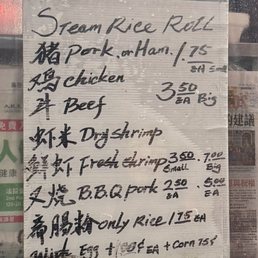 Steam Rice Roll
猪 Pork. or Ham. / 1.75 EA Small
鸡 chicken
牛 Beef 3.50 EA Big
虾米 Dry shrimp
鲜虾 Fresh shrimp 3.50 Small 7.00 Big
叉烧 B.B.Q pork 2.50 EA 5.00 EA
斋腸粉 only Rice 1.75 EA
Egg + Corn 75¢
免費
人
的建議